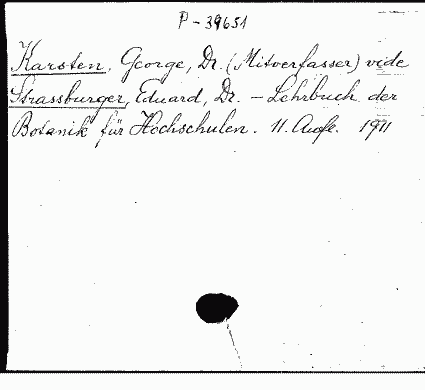 P-39651
Karsten, George, Dr. (Mitverfasser) vide
Strassburger, Eduard, Dr. - Lehrbuch der
Botanik für Hochschulen. 11. Aufl. 1911